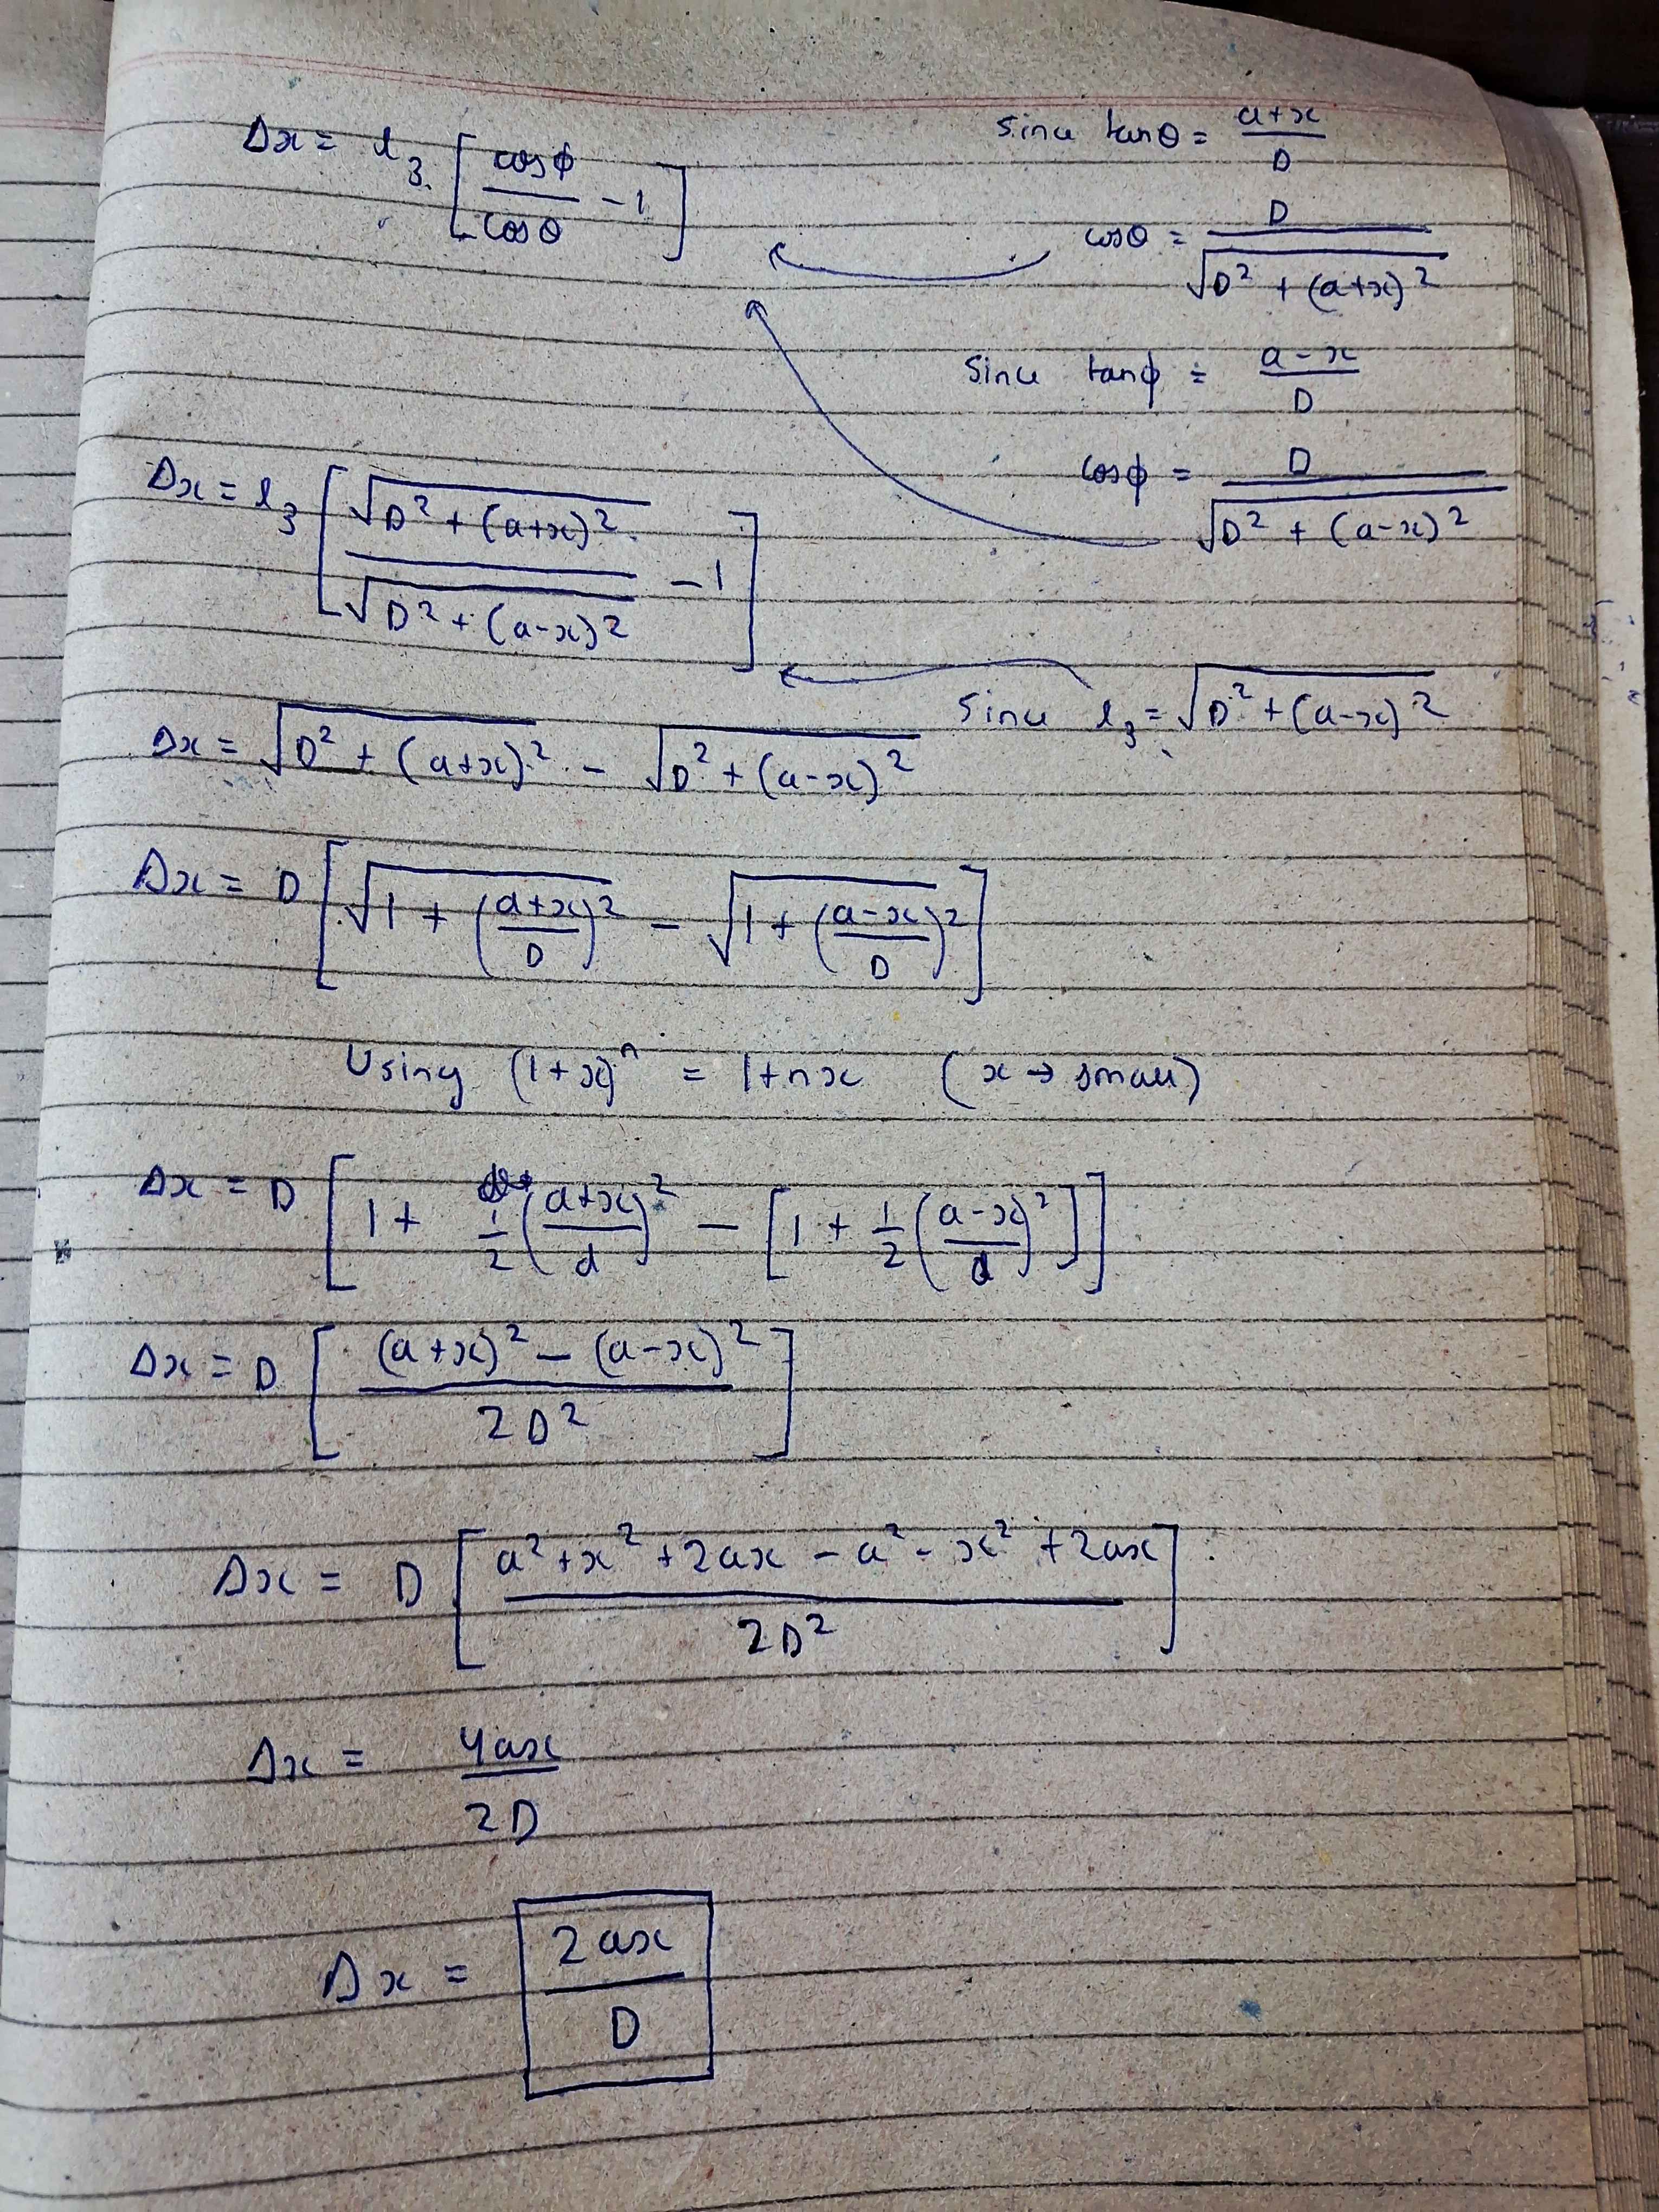 Δx = l₃ [cosϕ/cosθ - 1]
Since tanθ = (a+x)/D
cosθ = D/√(D² + (a+x)²)
Since tanϕ = (a-x)/D
cosϕ = D/√(D² + (a-x)²)
Δx = l₃ [√(D² + (a+x)²)/√(D² + (a-x)²) - 1]
Since l₃ = √(D² + (a-x)²)
Δx = √(D² + (a+x)²) - √(D² + (a-x)²)
Δx = D [√(1 + ((a+x)/D)²) - √(1 + ((a-x)/D)²)]
Using (1+x)ⁿ = 1+nx (x → small)
Δx = D [1 + 1/2 ((a+x)/d)² - [1 + 1/2 ((a-x)/d)²]]
Δx = D [((a+x)² - (a-x)²)/2D²]
Δx = D [(a² + x² + 2ax - a² - x² + 2ax)/2D²]
Δx = 4ax/2D
Δx = 2ax/D